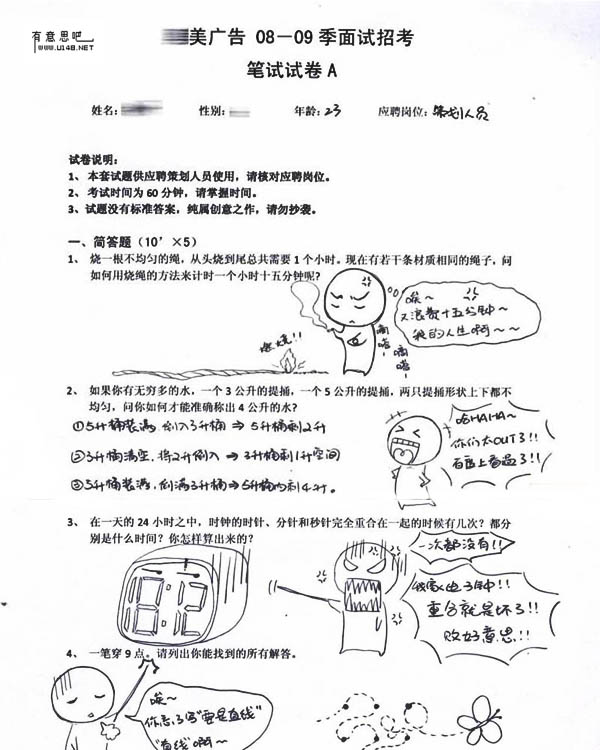 有意思吧
WWW.U148.NET
美广告 08－09 季面试招考
笔试试卷 A
姓名：
性别：
年龄：23
应聘岗位：策划人员
试卷说明：
1、 本套试题供应聘策划人员使用，请核对应聘岗位。
2、 考试时间为 60 分钟，请掌握时间。
3、试题没有标准答案，纯属创意之作，请勿抄袭。
一、简答题（10’×5）
1、 烧一根不均匀的绳，从头烧到尾总共需要 1 个小时。现在有若干条材质相同的绳子，问
如何用烧绳的方法来计时一个小时十五分钟呢？
唉～
又浪费十五分钟～
我的人生啊～～
燃烧!!
滴嗒
滴嗒
2、 如果你有无穷多的水，一个 3 公升的提捅，一个 5 公升的提捅，两只提捅形状上下都不
均匀，问你如何才能准确称出 4 公升的水？
①5升桶装满，倒入3升桶 ⇒ 5升桶剩2升
②3升桶清空，将2升倒入 ⇒ 3升桶剩1升空间
③5升桶装满，倒满3升桶⇒5升桶内剩4升。
哈HAHA～
你们太OUT了!!
百度上看过了!!
3、 在一天的 24 小时之中，时钟的时针、分针和秒针完全重合在一起的时候有几次？都分
别是什么时间？你怎样算出来的？
一次都没有!!
我家电子钟!!
重合就是坏了!!
败好意思!!
4、 一笔穿 9 点。请列出你能找到的所有解答。
唉～
你忘了写“要是直线”
“直线”啊～